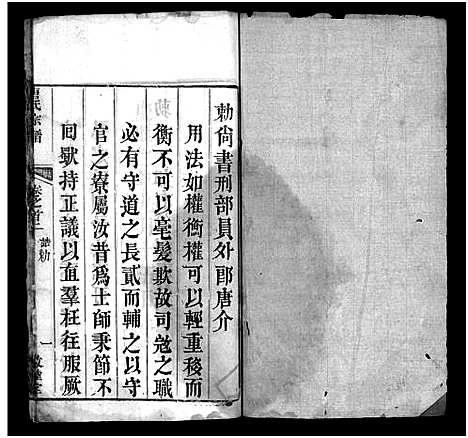 勅尚書刑部員外郎唐介
用法如權衡權可以輕重移而
衡不可以毫髮欺故司宼之職
必有守道之長貳而輔之以守
官之寮屬汝昔爲士師秉節不
回獄持正議以直羣枉往服厥
氏宗譜
卷之首
誥勅
一